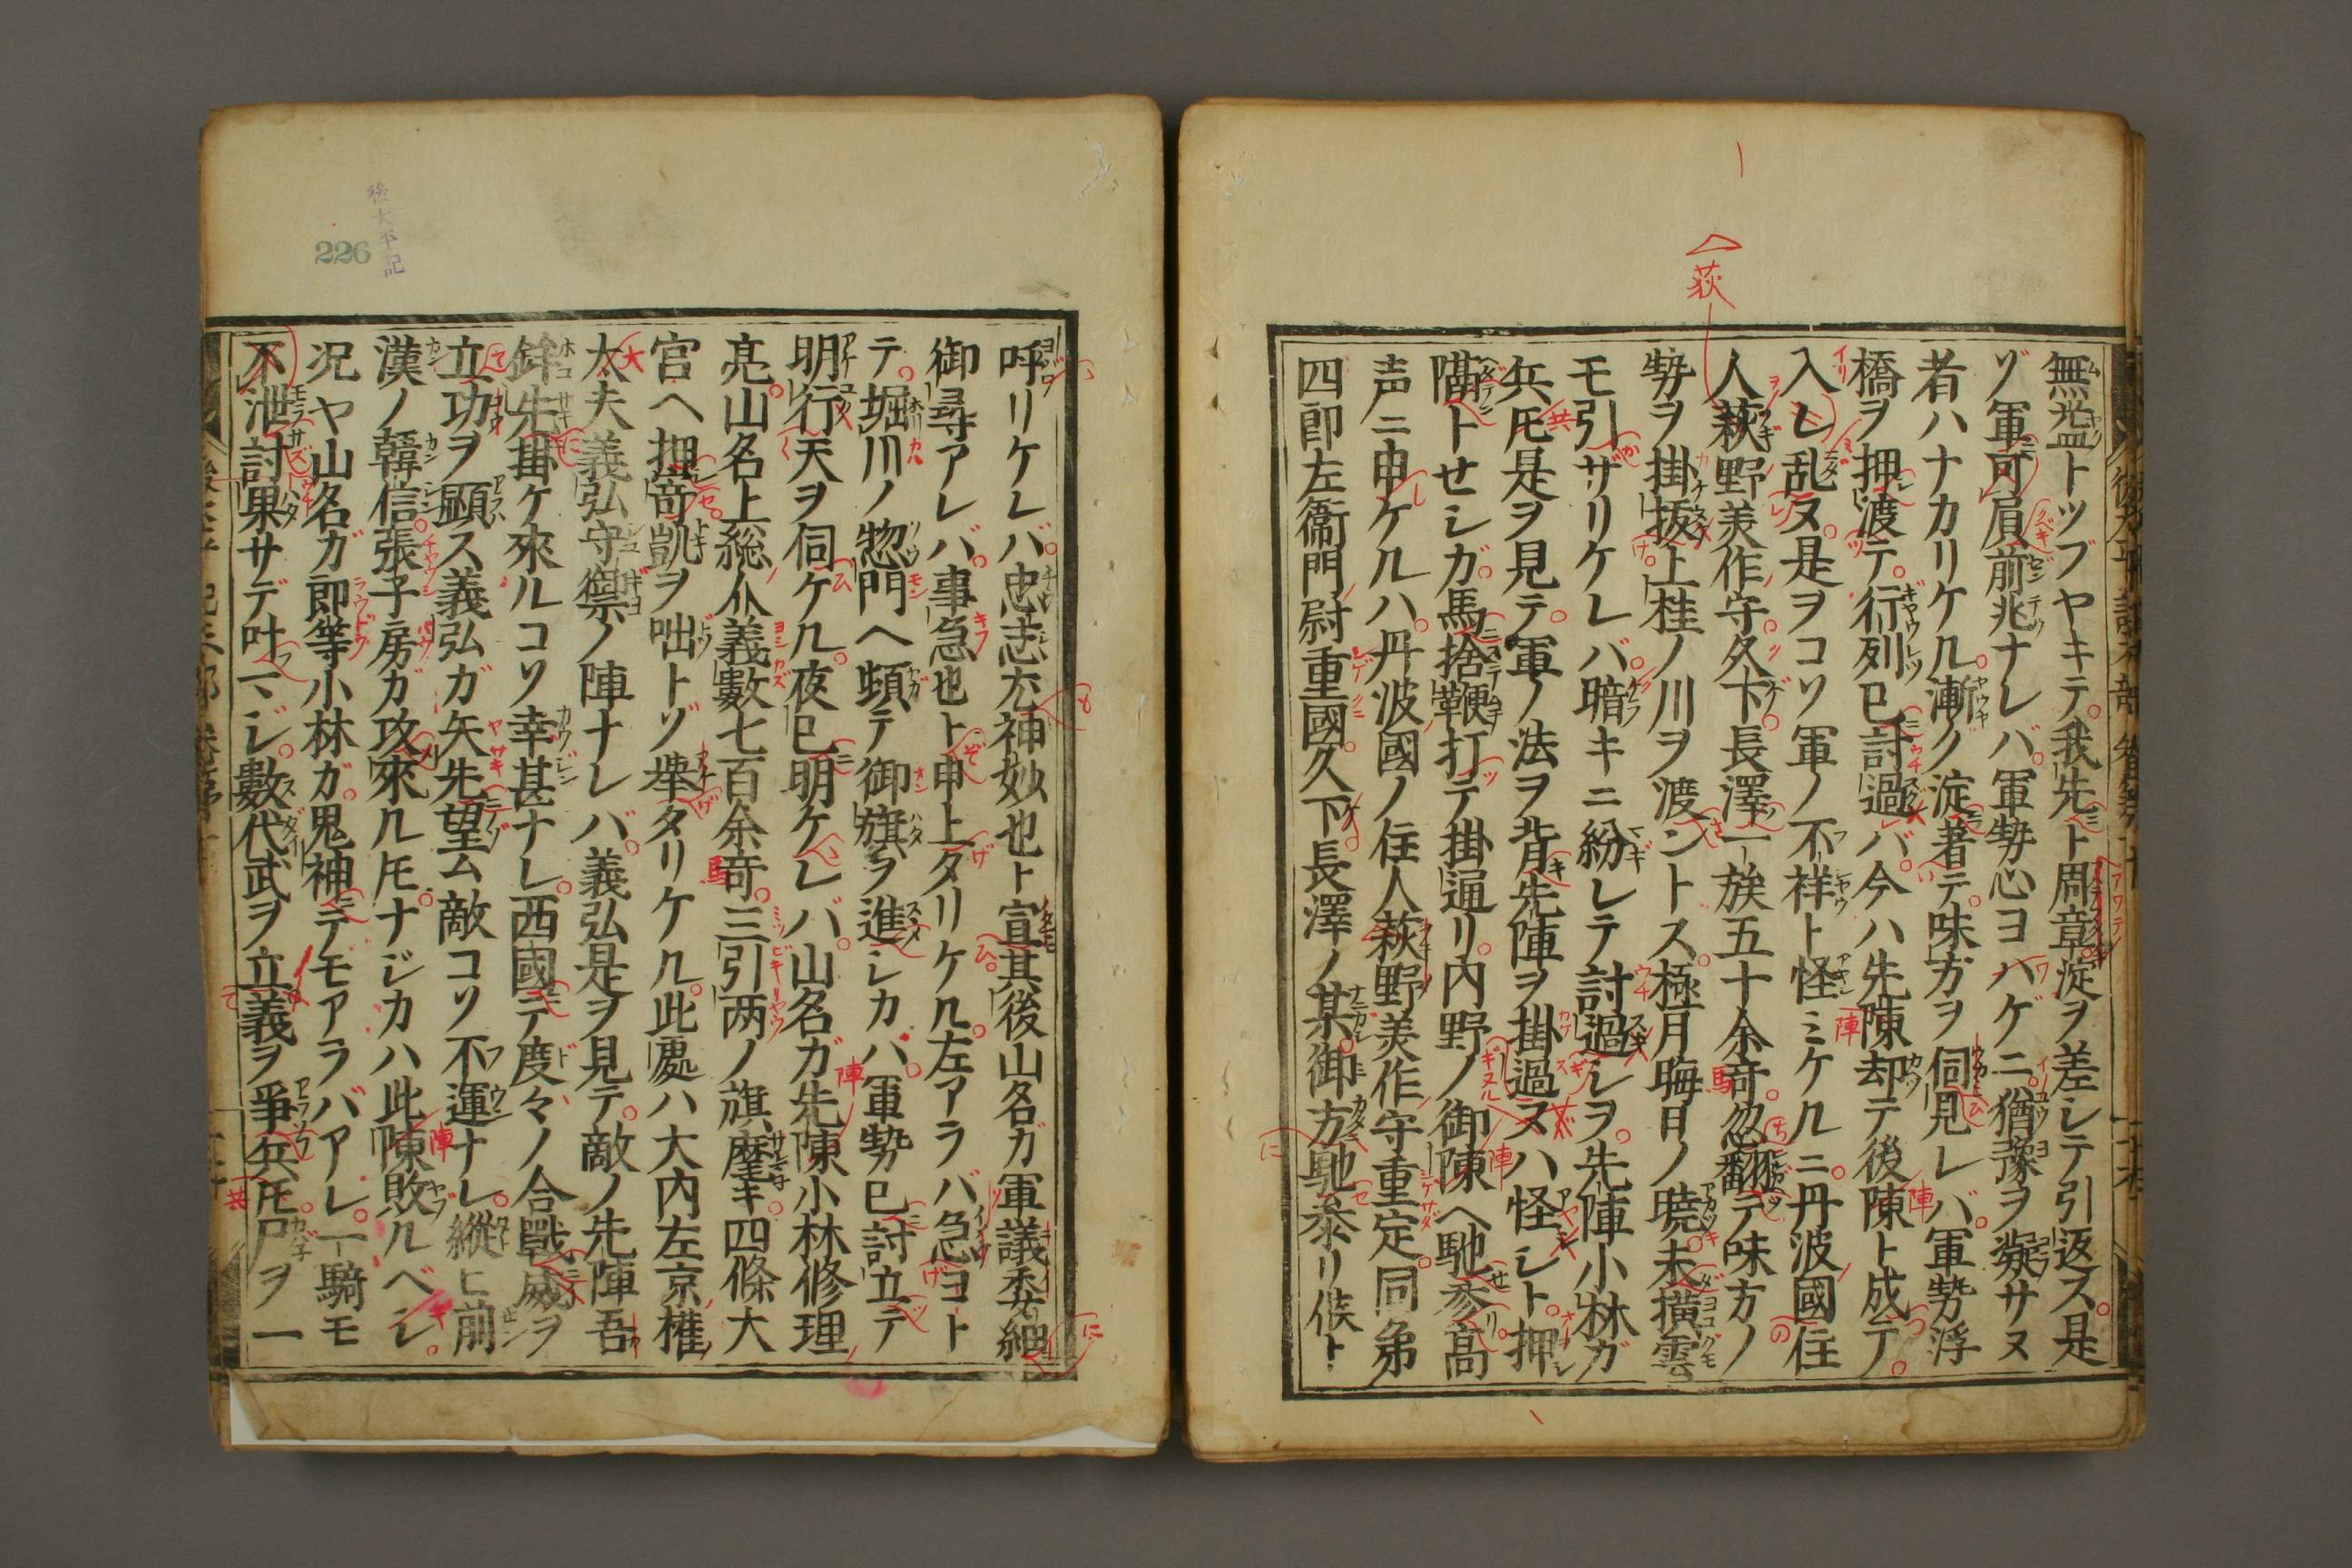 無益トツブヤキテ我先ト周章淀ヲ差レテ引返ス是
ゾ軍可肩前兆ナレバ軍勢心ヨハゲニ猶豫ヲ凝サヌ
者ハナカリケル漸ク淀著テ味方ヲ伺見レバ軍勢浮
橋ヲ押渡テ行列已討過バ今ハ先陳却テ後陳ト成テ
入レ乱ヌ是ヲコソ軍ノ不祥ト怪ミケルニ丹波國住
人萩野美作守久下長澤一族五十余竒忽翻テ味方ノ
勢ヲ掛抜上桂ノ川ヲ渡ントス極月晦日ノ暁未横雲
モ引ザリケレバ暗キニ紛レテ討過レヲ先陣小林ガ
兵𪜈是ヲ見テ軍ノ法ヲ背先陣ヲ掛過ヌハ怪レト押
隔トセシガ馬捨鞭打テ掛通リ内野ノ御陳ヘ馳參高
声ニ申ケルハ丹波國ノ住人萩野美作守重定同弟
四郎左衞門尉重國久下長澤ノ某御方馳參リ候ト
呼リケレバ忠志尤神妙也ト宣其後山名ガ軍議委細
御尋アレバ事急也ト申上タリケル左アラバ急ヨト
テ堀川ノ惣門ヘ頬テ御旗ヲ進レカバ軍勢已討立テ
明行天ヲ伺ケル夜已明ケレバ山名ガ先陳小林修理
亮山名上総介義數七百余竒三引两ノ旗麾キ四條大
宮ヘ押竒凱ヲ咄トゾ擧タリケル此處ハ大内左京權
太夫義弘守禦ノ陣ナレバ義弘是ヲ見テ敵ノ先陣吾
鉾先掛ケ來ルコソ幸甚ナレ西國テ度々ノ合戰威ヲ
立功ヲ顕ス義弘ガ矢先望ム敵コソ不運ナレ縱ヒ前
漢ノ韓信張子房ガ攻來ル𪜈ナジカハ此陳敗ルベシ
况ヤ山名ガ郎等小林ガ鬼神テモアラバアレ一騎モ
不泄討果サデ叶マジ數代武ヲ立義ヲ爭兵𪜈尸ヲ一
萩
後太平記
226